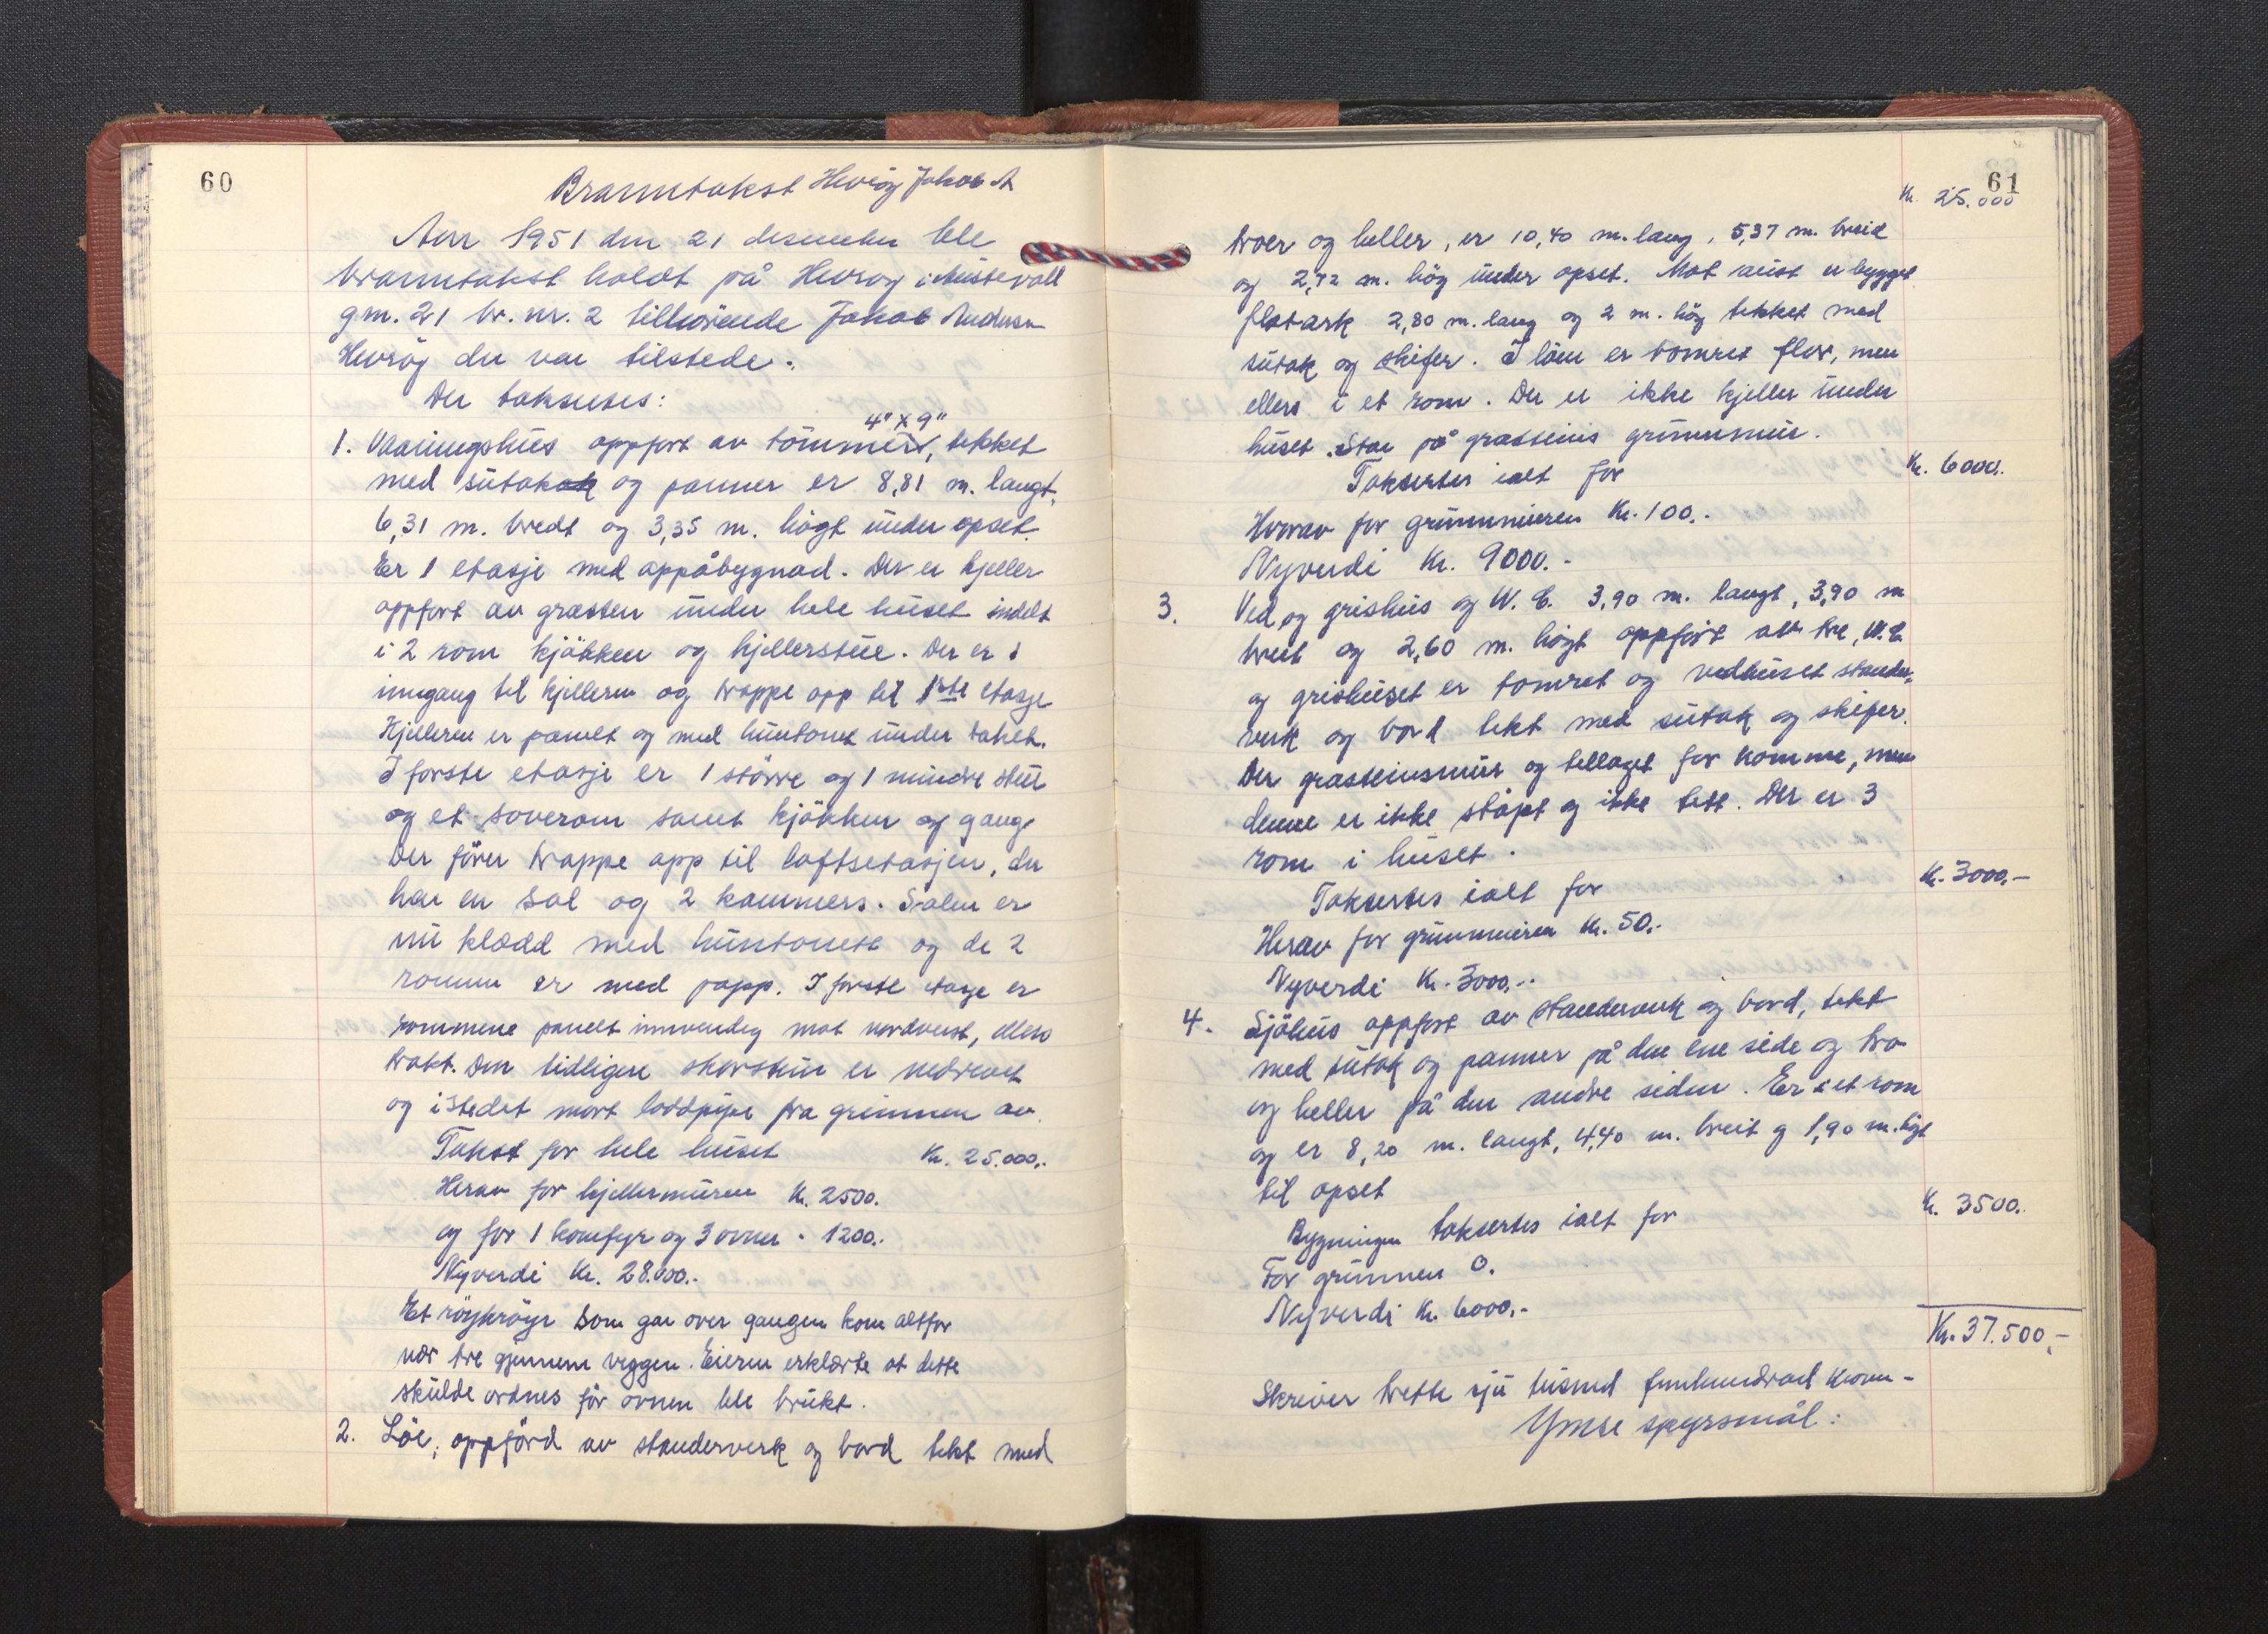 60
Branntakst Hevrøy Jakob A
Aar 1951 den 21 desember ble
branntakst holdt på Hevrøy i Austevoll
g.nr. 21 br. nr. 2 tilhørende Jakob Andersen
Hevröy der var tilstede.
Der takseres:
4" x 9"
1. Vaaningshus oppfört av tömmer, tekket
med sutak og panner er 8,81 m. langt,
6,31 m. bredt og 3,35 m. högt under opset.
Er 1 etasje med oppåbygnad. Der er kjeller
oppfört av gråsten under hele huset indelt
i 2 rom kjökken og kjellerstue. Der er 1
inngang til kjelleren og trappe opp til 1ste etasje
Kjelleren er panelt og med huntonet under taket.
I förste etasje er 1 större og 1 mindre stue
og et soverom samt kjökken og gang.
Der förer trappe opp til loftsetasjen, der
har en sal og 2 kammers. Salen er
nu kledd med huntonett og de 2
rommn er med papp. I förste etasje er
rommene panelt innvendig mot nordvest, ellers
trakt. Den tidligere skorstein er nedrevet
og istedet mort loddpipe fra grunnen av.
Takst for hele huset Kr. 25.000.-
Herav for kjellermuren Kr. 2500.
og for 1 komfyr og 3 ovner " 1200.-
Nyverdi Kr. 28.000.-
Et röykröyr som går over gangen kom altfor
nær tre gjennem veggen. Eieren erklærte at dette
skulde ordnes för ovnen ble brukt.
2. Löe, oppförd av standerverk og bord tekt med
61
Kr. 25.000
troer og heller, er 10,40 m. lang, 5,37 m. breid
og 2,72 m. hög under opset. Mot aust er bygget
flatark 2,80 m. lang og 2 m. hög tekket med
sutak og skifer. I löen er tomret flor, men
ellers i et rom. Der er ikke kjeller under
huset. Står på gråsteins grunnmur.
Takseres ialt for Kr. 6000.
Hvorav for grunnmuren Kr. 100.-
Nyverdi Kr. 9000.-
3. Ved og grishus og W.C. 3,90 m. langt, 3,90 m
breit og 2,60 m. högt oppfört av tre, W.C.
og grishuset er tomret og vedhuset stander-
verk og bord tekt med sutak og skifer.
Der grasteinsmur og tillaget for komme, men
denne er ikke stöpt og ikke tett. Der er 3
rom i huset.
Takseres ialt for Kr. 3000.-
Herav for grunnmuren Kr. 50.-
Nyverdi Kr. 3000.-
4. Sjöhus oppfört av standerverk og bord, tekt
med sutak og panner på den ene side og tro
og heller på den andre siden. Er i et rom
og er 8,20 m. langt, 4,40 m. breit og 1,90 m. högt
til opset
Bygningen takseres ialt for Kr. 3500.
For grunnen 0.
Nyverdi Kr. 6000.-
Kr. 37.500,-
Skriver trette sju tusend femhundrad kroner-
Ymse spyrsmål: